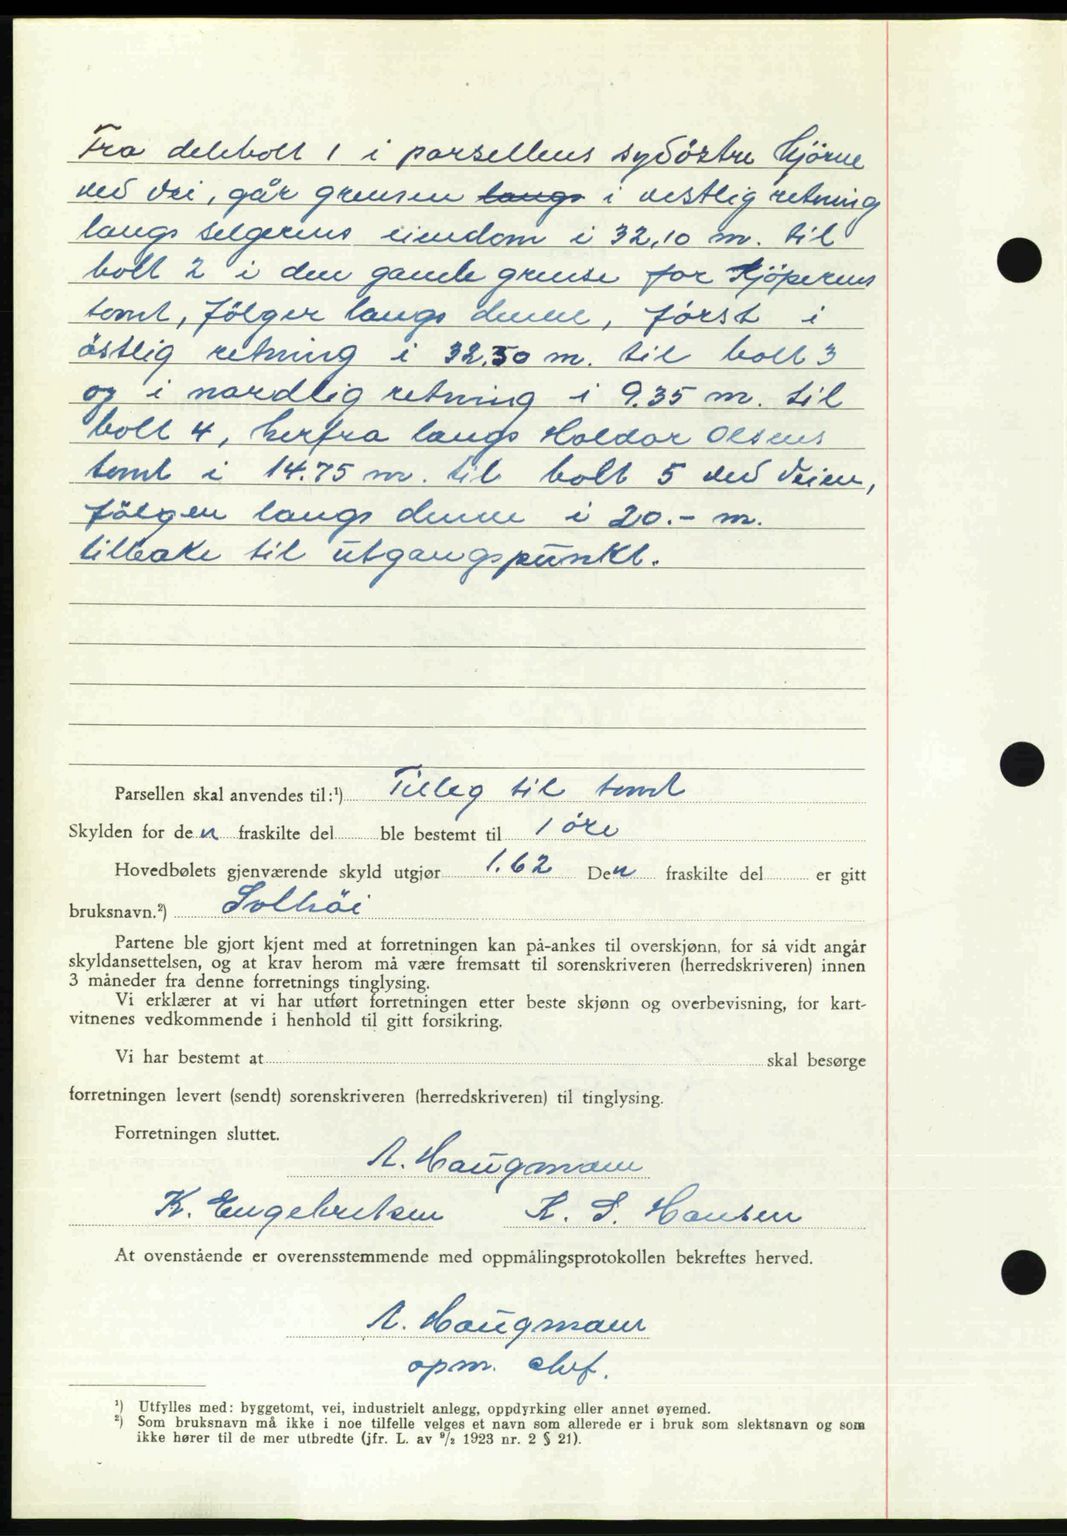 Fra delebolt 1 i parsellens sydöstre hjörne
ved vei, går grensen langs i vestlig retning
langs selgerens eiendom i 32,10 m. til
bolt 2 i den gamle grense for kjöperens
tomt, fölger langs denne, först i
östlig retning i 32.50 m. til bolt 3
og i nordlig retning i 9.35 m. til
bolt 4, herfra langs Haldor Olsens
tomt i 14.75 m. til bolt 5 ved veien,
fölgen langs denne i 20.- m.
tilbake til utgangspunkt.
Parsellen skal anvendes til:¹) Tilleg til tomt
Skylden for den fraskilte del ble bestemt til 1 öre
Hovedbølets gjenværende skyld utgjør 1.62 Den fraskilte del er gitt
bruksnavn.²) Solhöi
Partene ble gjort kjent med at forretningen kan på-ankes til overskjønn, for så vidt angår
skyldansettelsen, og at krav herom må være fremsatt til sorenskriveren (herredskriveren) innen
3 måneder fra denne forretnings tinglysing.
Vi erklærer at vi har utført forretningen etter beste skjønn og overbevisning, for kart-
vitnenes vedkommende i henhold til gitt forsikring.
Vi har bestemt at skal besørge
forretningen levert (sendt) sorenskriveren (herredskriveren) til tinglysing.
Forretningen sluttet.
A. Haugmann
K. Engebretsen K. S. Hansen
At ovenstående er overensstemmende med oppmålingsprotokollen bekreftes herved.
A. Haugmann
opm. chef.
¹) Utfylles med: byggetomt, vei, industrielt anlegg, oppdyrking eller annet øyemed.
²) Som bruksnavn må ikke i noe tilfelle velges et navn som allerede er i bruk som slektsnavn og som
ikke hører til de mer utbredte (jfr. L. av ⁹/₂ 1923 nr. 2 § 21).